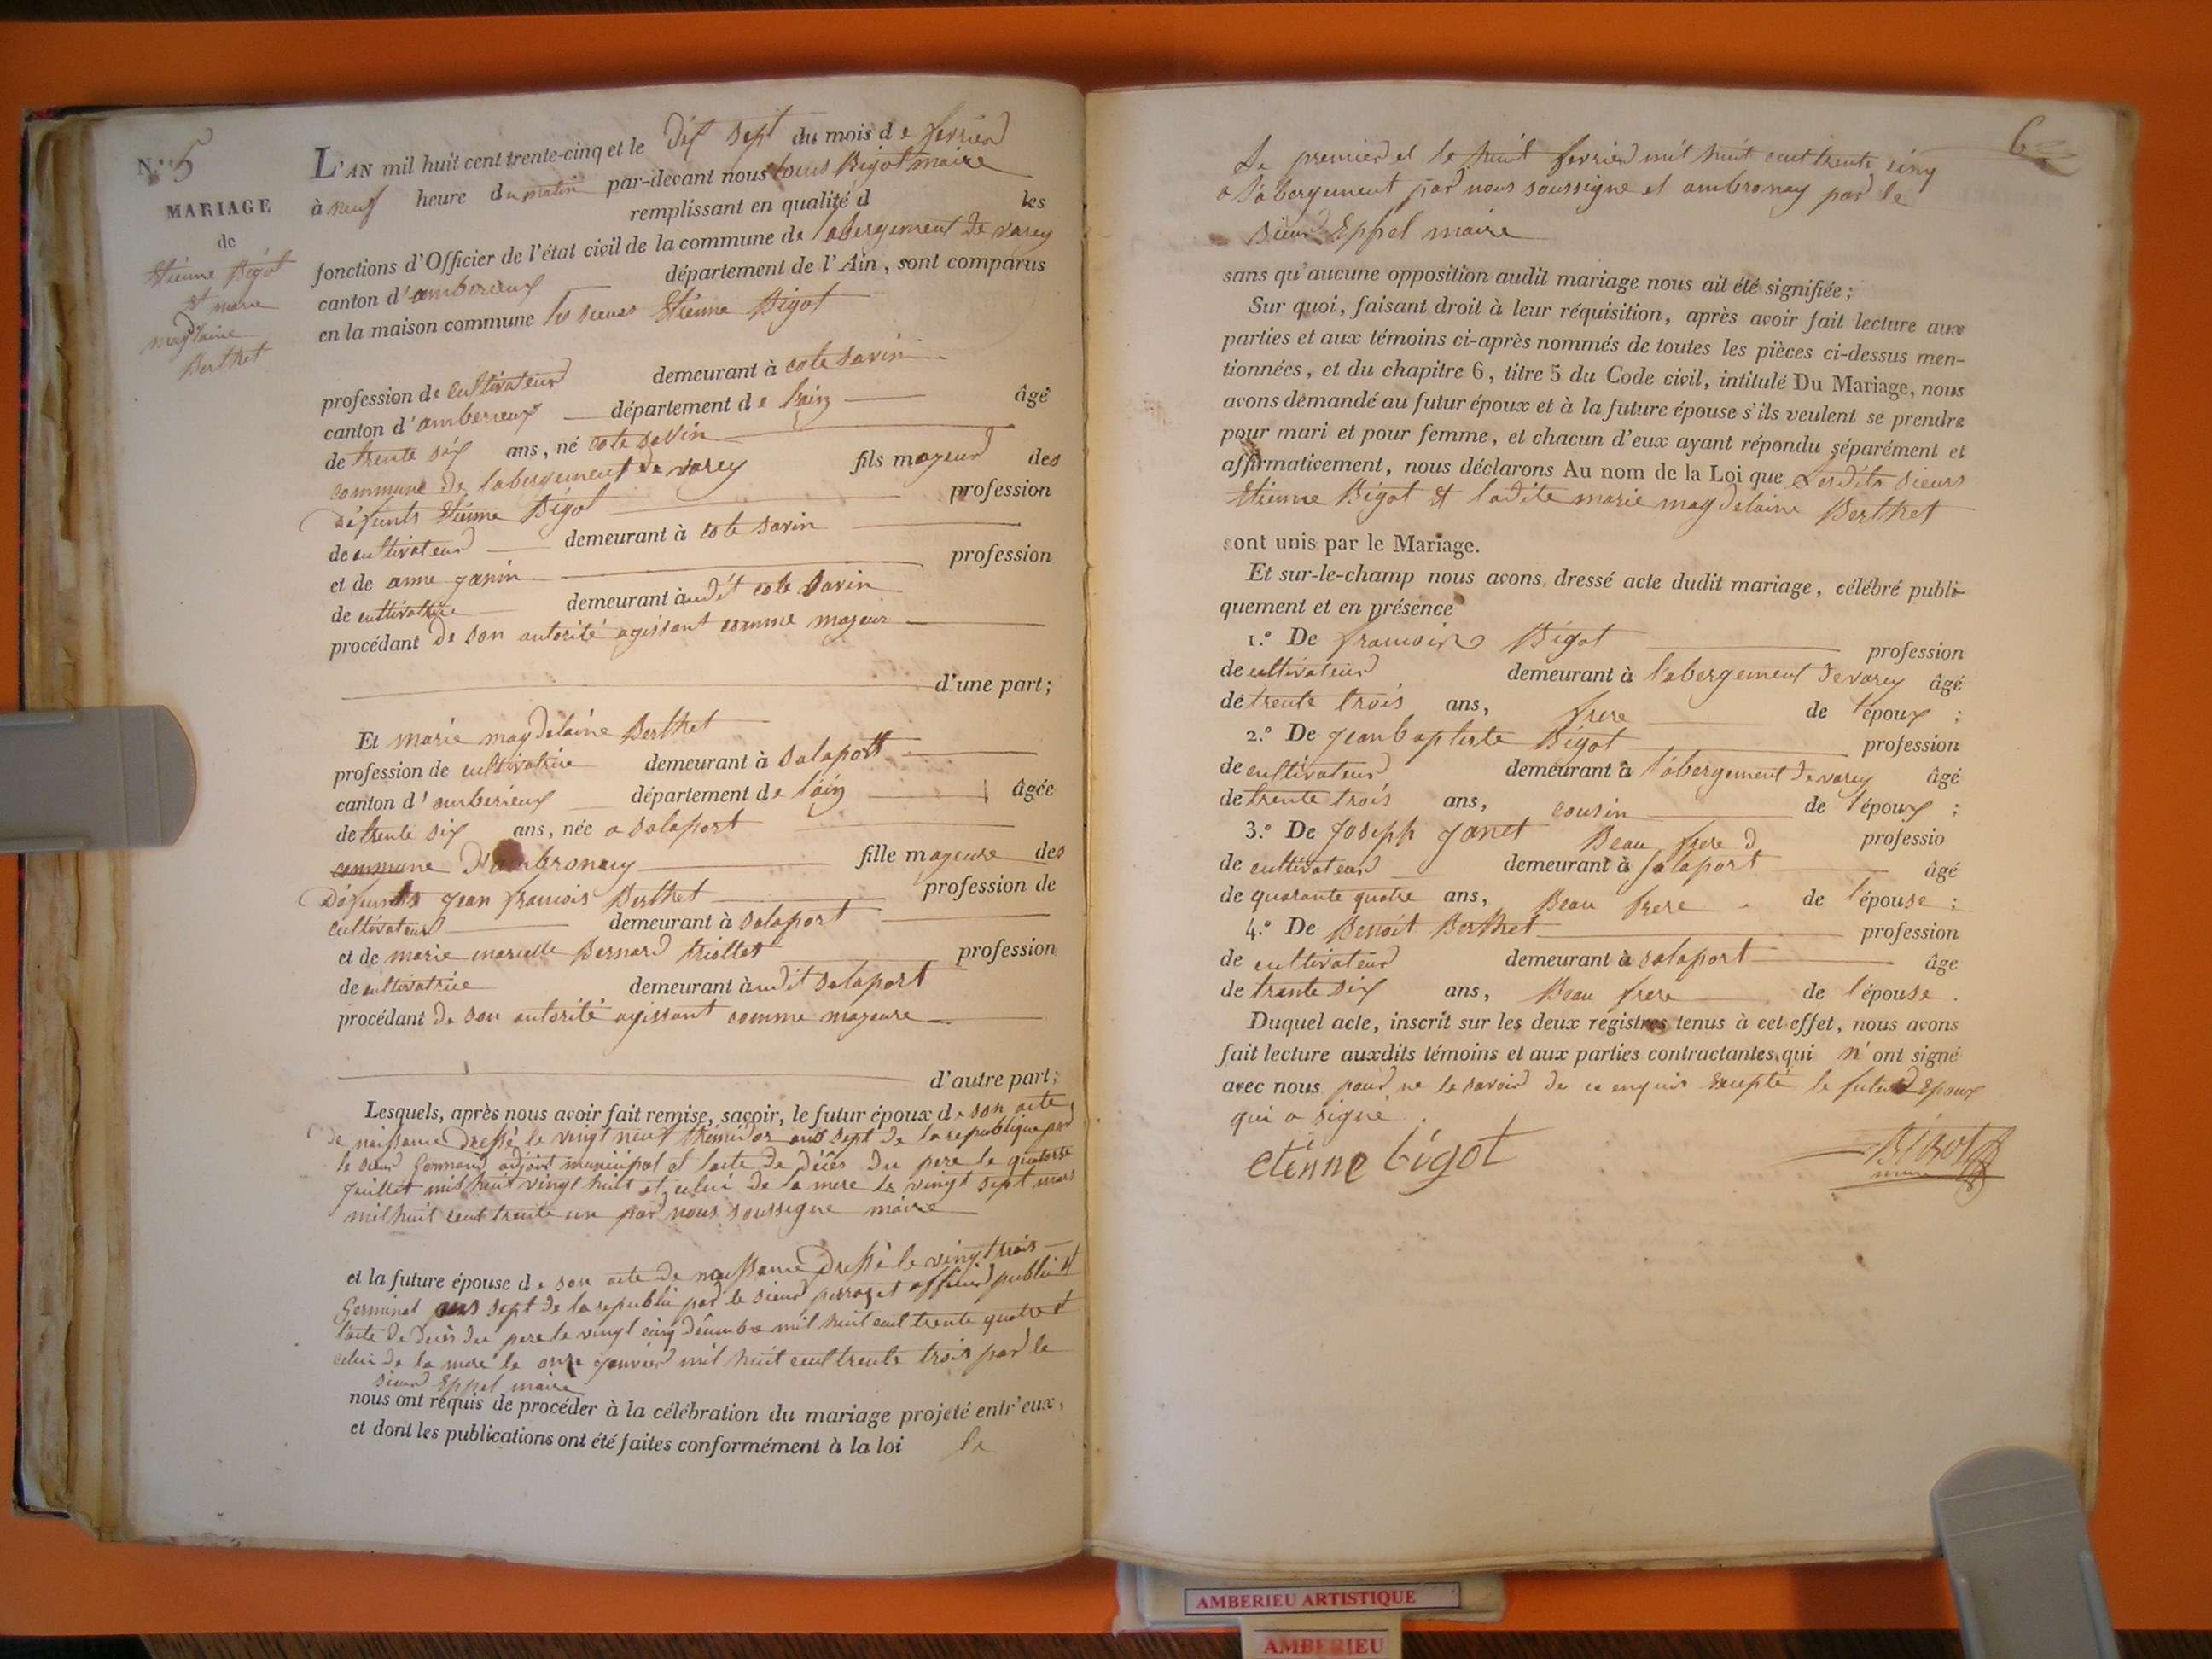 N.° 5
MARIAGE
de
Etienne Bigot
et marie
magdlaine
Berthet
L'AN mil huit cent trente-cinq et le dix sept du mois de fevrier
à neuf heure du matin par-devant nous Bigot maire
remplissant en qualité d les
fonctions d'Officier de l'état civil de la commune de labergement de varey
canton d'amberieux département de l'Ain, sont comparus
en la maison commune les sieurs Etienne Bigot
profession de cultivateur demeurant à cote savin
canton d'amberieux département de lain âgé
de trente six ans, né cote savin
commune de labergement de varey fils majeur des
défunts Etienne Bigot profession
de cultivateur demeurant à cote savin
et de anne janin profession
de cultivatrice demeurant audit cote savin
procédant de son autorité agissant comme majeur
d'une part;
Et marie magdelaine Berthet
profession de cultivatrice demeurant à salaport
canton d'amberieux département de láin âgée
de trente six ans, née a salaport
commune d'ambronay fille majeure des
défunts jean francois Berthet profession de
cultivateur demeurant à salaport
et de marie Bernard profession
de cultivatrice demeurant audit salaport
procédant de son autorité agissant comme majeure
d'autre part;
Lesquels, après nous avoir fait remise, saçoir, le futur époux de son acte
de naissance dressé le vingt neuf de la republique par
le sieur adjoint municipal et lacte de décès du pere le quatorze
juillet mil huit vingt huit et celui de la mere le vingt sept mars
mil huit cent trente un par nous soussigne maire
et la future épouse de son acte de naissance dressé le vingt trois
Germinal ans sept de la republi par le sieur officier public et
lacte de décès du pere le vingt cinq décembre mil huit cent trente quatre et
celui de la mere le onze janvier mil huit cent trente trois par le
sieur Eppel maire
nous ont requis de procéder à la célébration du mariage projeté entr'eux,
et dont les publications ont été faites conformément à la loi le
6
Le premier et le huit fevrier mil huit cent trente cinq
a labergement par nous soussigne et ambronay par le
sieur Eppel maire
sans qu'aucune opposition audit mariage nous ait été signifiée;
Sur quoi, faisant droit à leur réquisition, après avoir fait lecture aux
parties et aux témoins ci-après nommés de toutes les pièces ci-dessus men-
tionnées, et du chapitre 6, titre 5 du Code civil, intitulé Du Mariage, nous
avons demandé au futur époux et à la future épouse s'ils veulent se prendre
pour mari et pour femme, et chacun d'eux ayant répondu séparément et
affirmativement, nous déclarons Au nom de la Loi que Lesdits sieurs
Etienne Bigot et ladite marie magdelaine Berthet
sont unis par le Mariage.
Et sur-le-champ nous avons dressé acte dudit mariage, célébré publi-
quement et en présence
1.° De francois Bigot profession
de cultivateur demeurant à labergement de varey âgé
de trente trois ans, frere de lépoux ;
2.° De jean baptiste Bigot profession
de cultivateur demeurant à labergement de varey âgé
de trente trois ans, cousin de lépoux ;
3.° De joseph janet Beau frere d professio
de cultivateur demeurant à salaport âgé
de quarante quatre ans, Beau frere de lépouse ;
4.° De Benoit Berthet profession
de cultivateur demeurant à salaport âge
de trente six ans, Beau frere de lépouse .
Duquel acte, inscrit sur les deux registres tenus à cet effet, nous avons
fait lecture auxdits témoins et aux parties contractantes qui n'ont signé
avec nous pour ne le savoir de ce enquis Excepté le futur Epoux
qui a signé
etienne bigot
Bigot
maire
AMBERIEU ARTISTIQUE
AMBERIEU